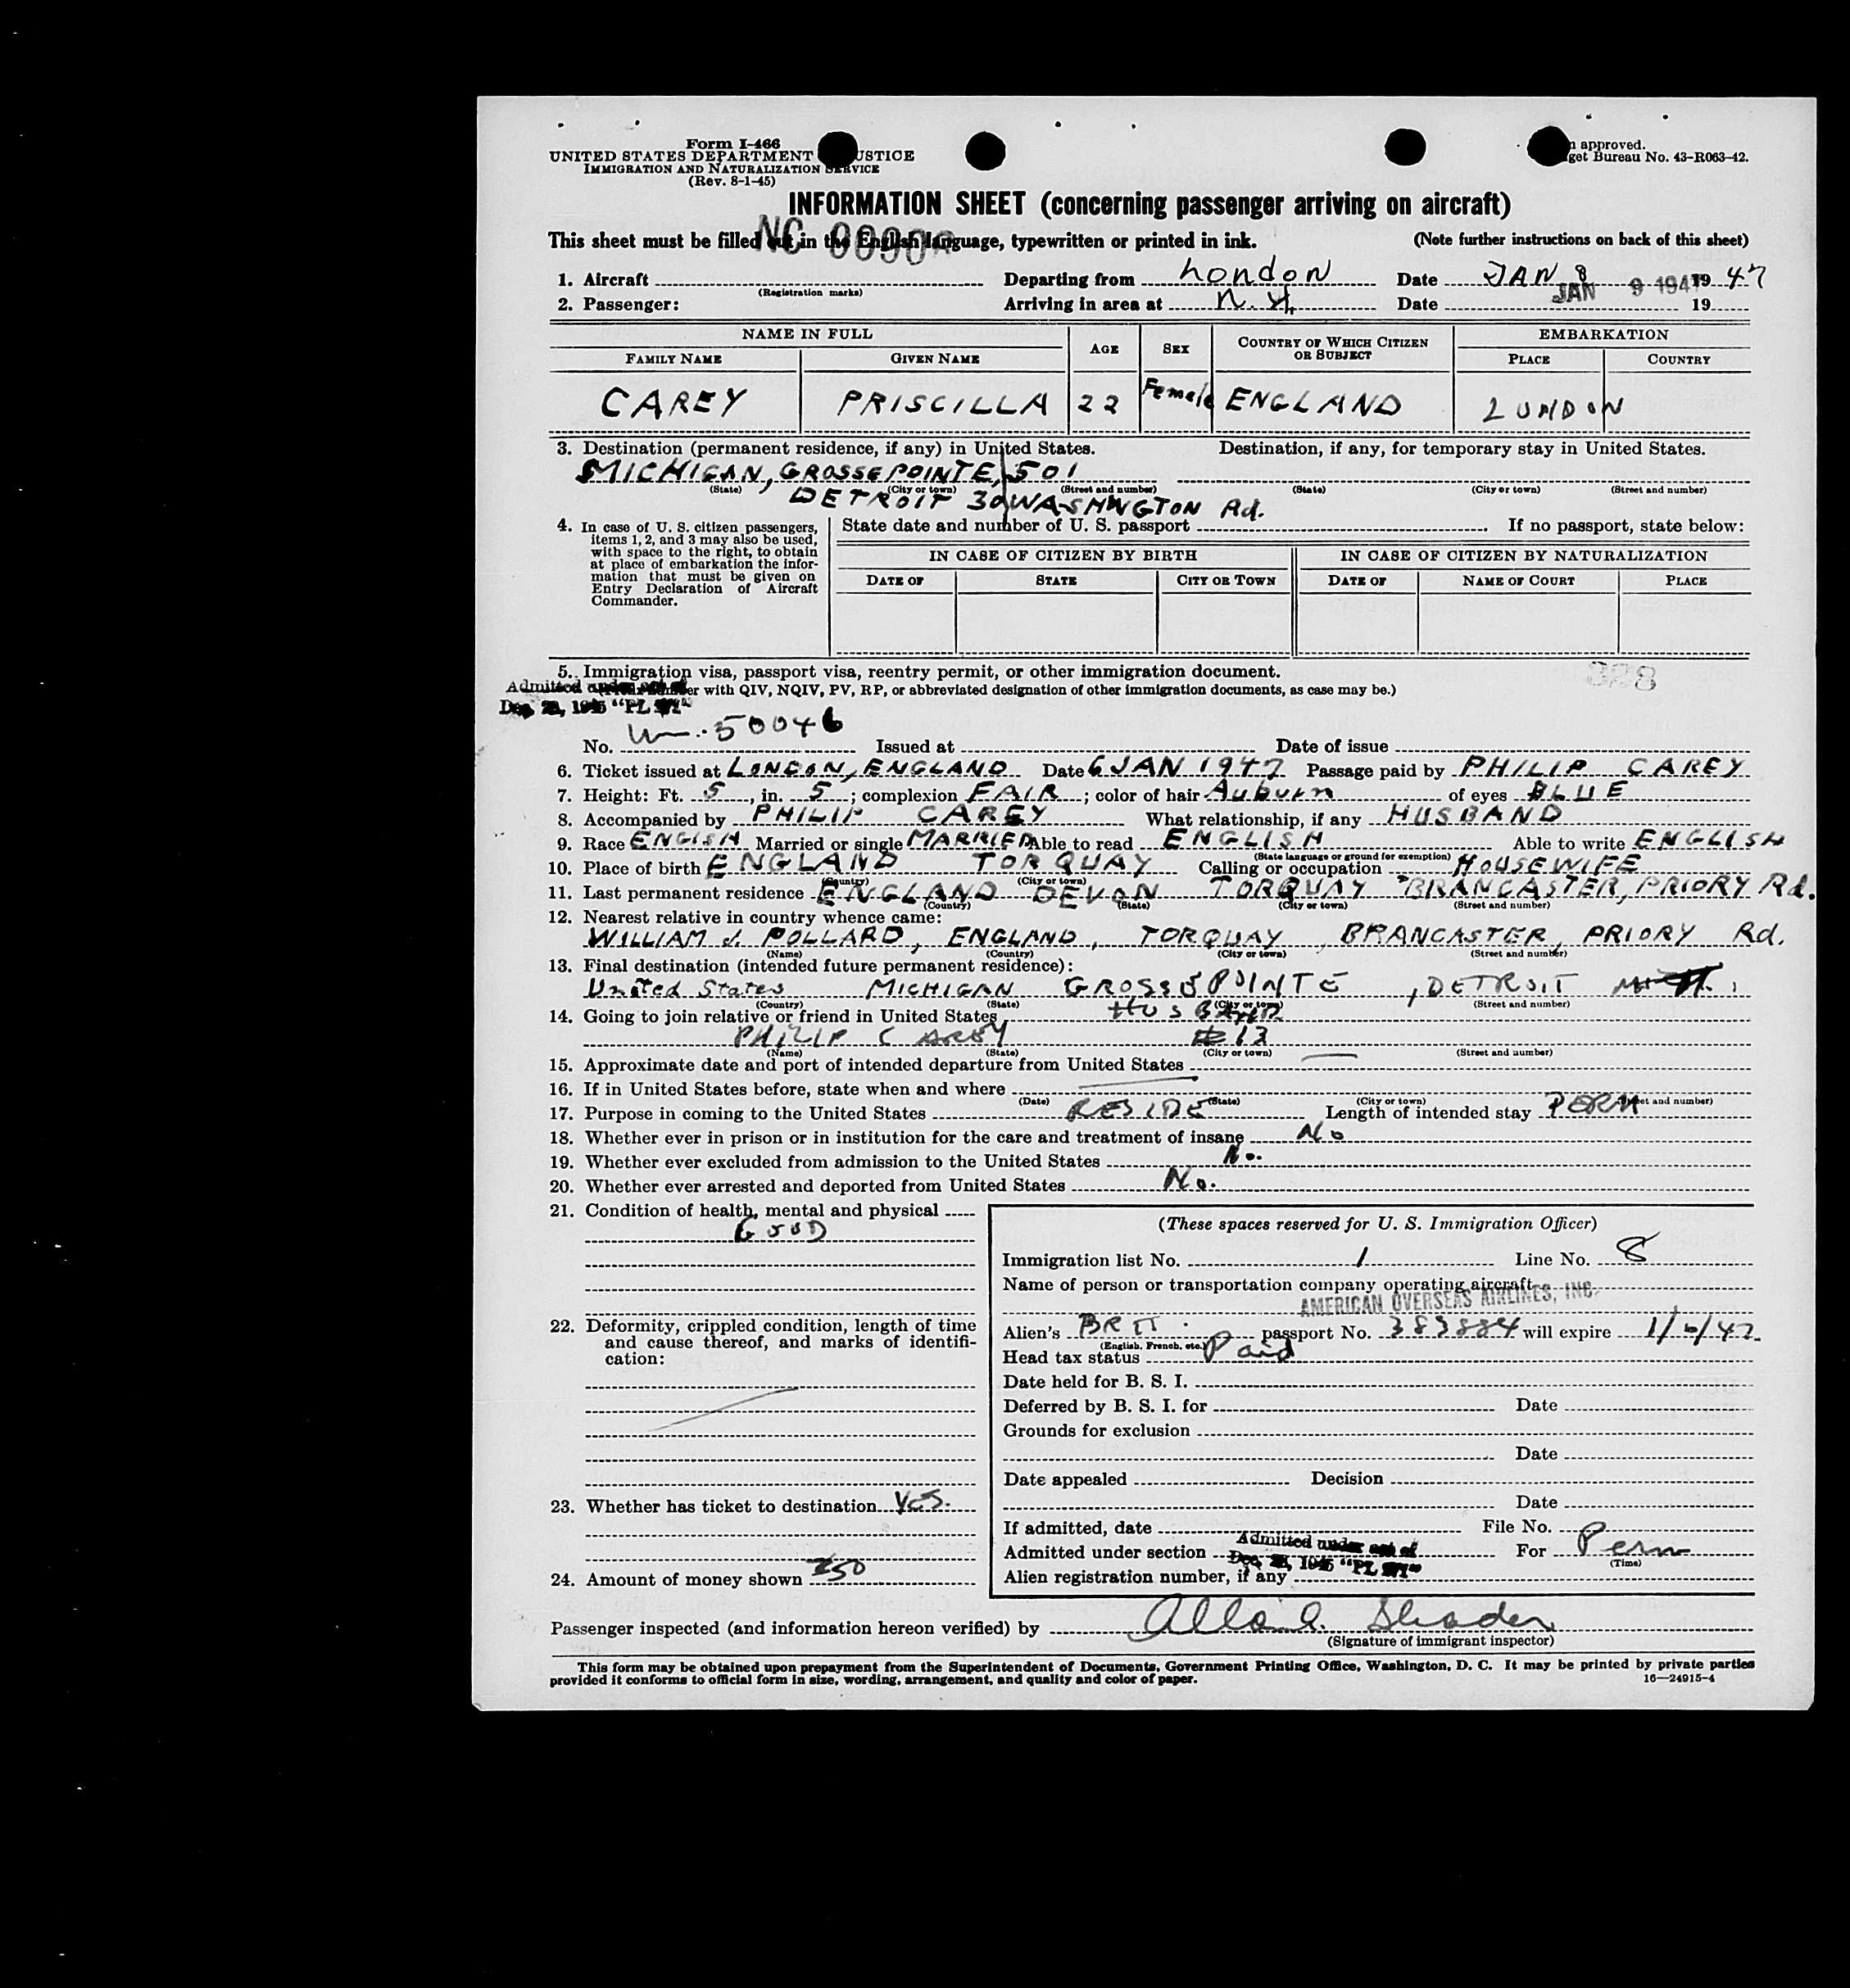 Form I-466
UNITED STATES DEPARTMENT USTICE
IMMIGRATION AND NATURALIZATION SERVICE
(Rev. 8-1-45)
approved.
get Bureau No. 43-R063-42.
INFORMATION SHEET (concerning passenger arriving on aircraft)
NC
This sheet must be filled out in the English language, typewritten or printed in ink. (Note further instructions on back of this sheet)
1. Aircraft Departing from London Date JAN 8 1947
(Registration marks)
JAN 9 1947
2. Passenger: Arriving in area at N.Y. Date 19
NAME IN FULL AGE SEX COUNTRY OF WHICH CITIZEN OR SUBJECT EMBARKATION
FAMILY NAME GIVEN NAME PLACE COUNTRY
CAREY PRISCILLA 22 Female ENGLAND LONDON
3. Destination (permanent residence, if any) in United States. Destination, if any, for temporary stay in United States.
MICHIGAN, GROSSE POINTE, 501
(State) (City or town) (Street and number) (State) (City or town) (Street and number)
DETROIT 30 WASHINGTON Rd.
4. In case of U. S. citizen passengers, items 1, 2, and 3 may also be used, with space to the right, to obtain at place of embarkation the information that must be given on Entry Declaration of Aircraft Commander.
State date and number of U. S. passport If no passport, state below:
IN CASE OF CITIZEN BY BIRTH IN CASE OF CITIZEN BY NATURALIZATION
DATE OF STATE CITY OR TOWN DATE OF NAME OF COURT PLACE
5. Immigration visa, passport visa, reentry permit, or other immigration document.
328
Admitted under act of
with QIV, NQIV, PV, RP, or abbreviated designation of other immigration documents, as case may be.)
Dec. 28, 1945 "PL 271"
No. 50046 Issued at Date of issue
6. Ticket issued at LONDON, ENGLAND Date 6 JAN 1947 Passage paid by PHILIP CAREY
7. Height: Ft. 5, in. 5; complexion FAIR; color of hair Auburn of eyes BLUE
8. Accompanied by PHILIP CAREY What relationship, if any HUSBAND
9. Race ENGISH Married or single MARRIED Able to read ENGLISH Able to write ENGLISH
(State language or ground for exemption)
10. Place of birth ENGLAND TORQUAY Calling or occupation HOUSEWIFE
(Country) (City or town)
11. Last permanent residence ENGLAND DEVON TORQUAY "BRANCASTER, PRIORY Rd.
(Country) (State) (City or town) (Street and number)
12. Nearest relative in country whence came:
WILLIAM J. POLLARD, ENGLAND, TORQUAY, BRANCASTER, PRIORY Rd.
(Name) (Country) (City or town) (Street and number)
13. Final destination (intended future permanent residence):
United States MICHIGAN GROSSE POINTE, DETROIT
(Country) (State) (City or town) (Street and number)
14. Going to join relative or friend in United States HUSBAND
PHILIP CAREY #13
(Name) (State) (City or town) (Street and number)
15. Approximate date and port of intended departure from United States —
16. If in United States before, state when and where —
(Date) (State) (City or town) (Street and number)
17. Purpose in coming to the United States RESIDE Length of intended stay PERM
18. Whether ever in prison or in institution for the care and treatment of insane No
19. Whether ever excluded from admission to the United States No.
20. Whether ever arrested and deported from United States No.
21. Condition of health, mental and physical
GOOD
22. Deformity, crippled condition, length of time and cause thereof, and marks of identification:
23. Whether has ticket to destination Yes.
24. Amount of money shown 250
(These spaces reserved for U. S. Immigration Officer)
Immigration list No. 1 Line No. 8
Name of person or transportation company operating aircraft
AMERICAN OVERSEAS AIRLINES, INC.
Alien's BRIT. passport No. 383884 will expire 1/6/47
(English, French, etc.)
Head tax status Paid
Date held for B. S. I.
Deferred by B. S. I. for Date
Grounds for exclusion
Date
Date appealed Decision
Date
If admitted, date File No.
Admitted under section Admitted under act of Dec. 28, 1945 "PL 271" For Perm
(Time)
Alien registration number, if any
Passenger inspected (and information hereon verified) by
(Signature of immigrant inspector)
This form may be obtained upon prepayment from the Superintendent of Documents, Government Printing Office, Washington, D. C. It may be printed by private parties
provided it conforms to official form in size, wording, arrangement, and quality and color of paper. 16—24915-4